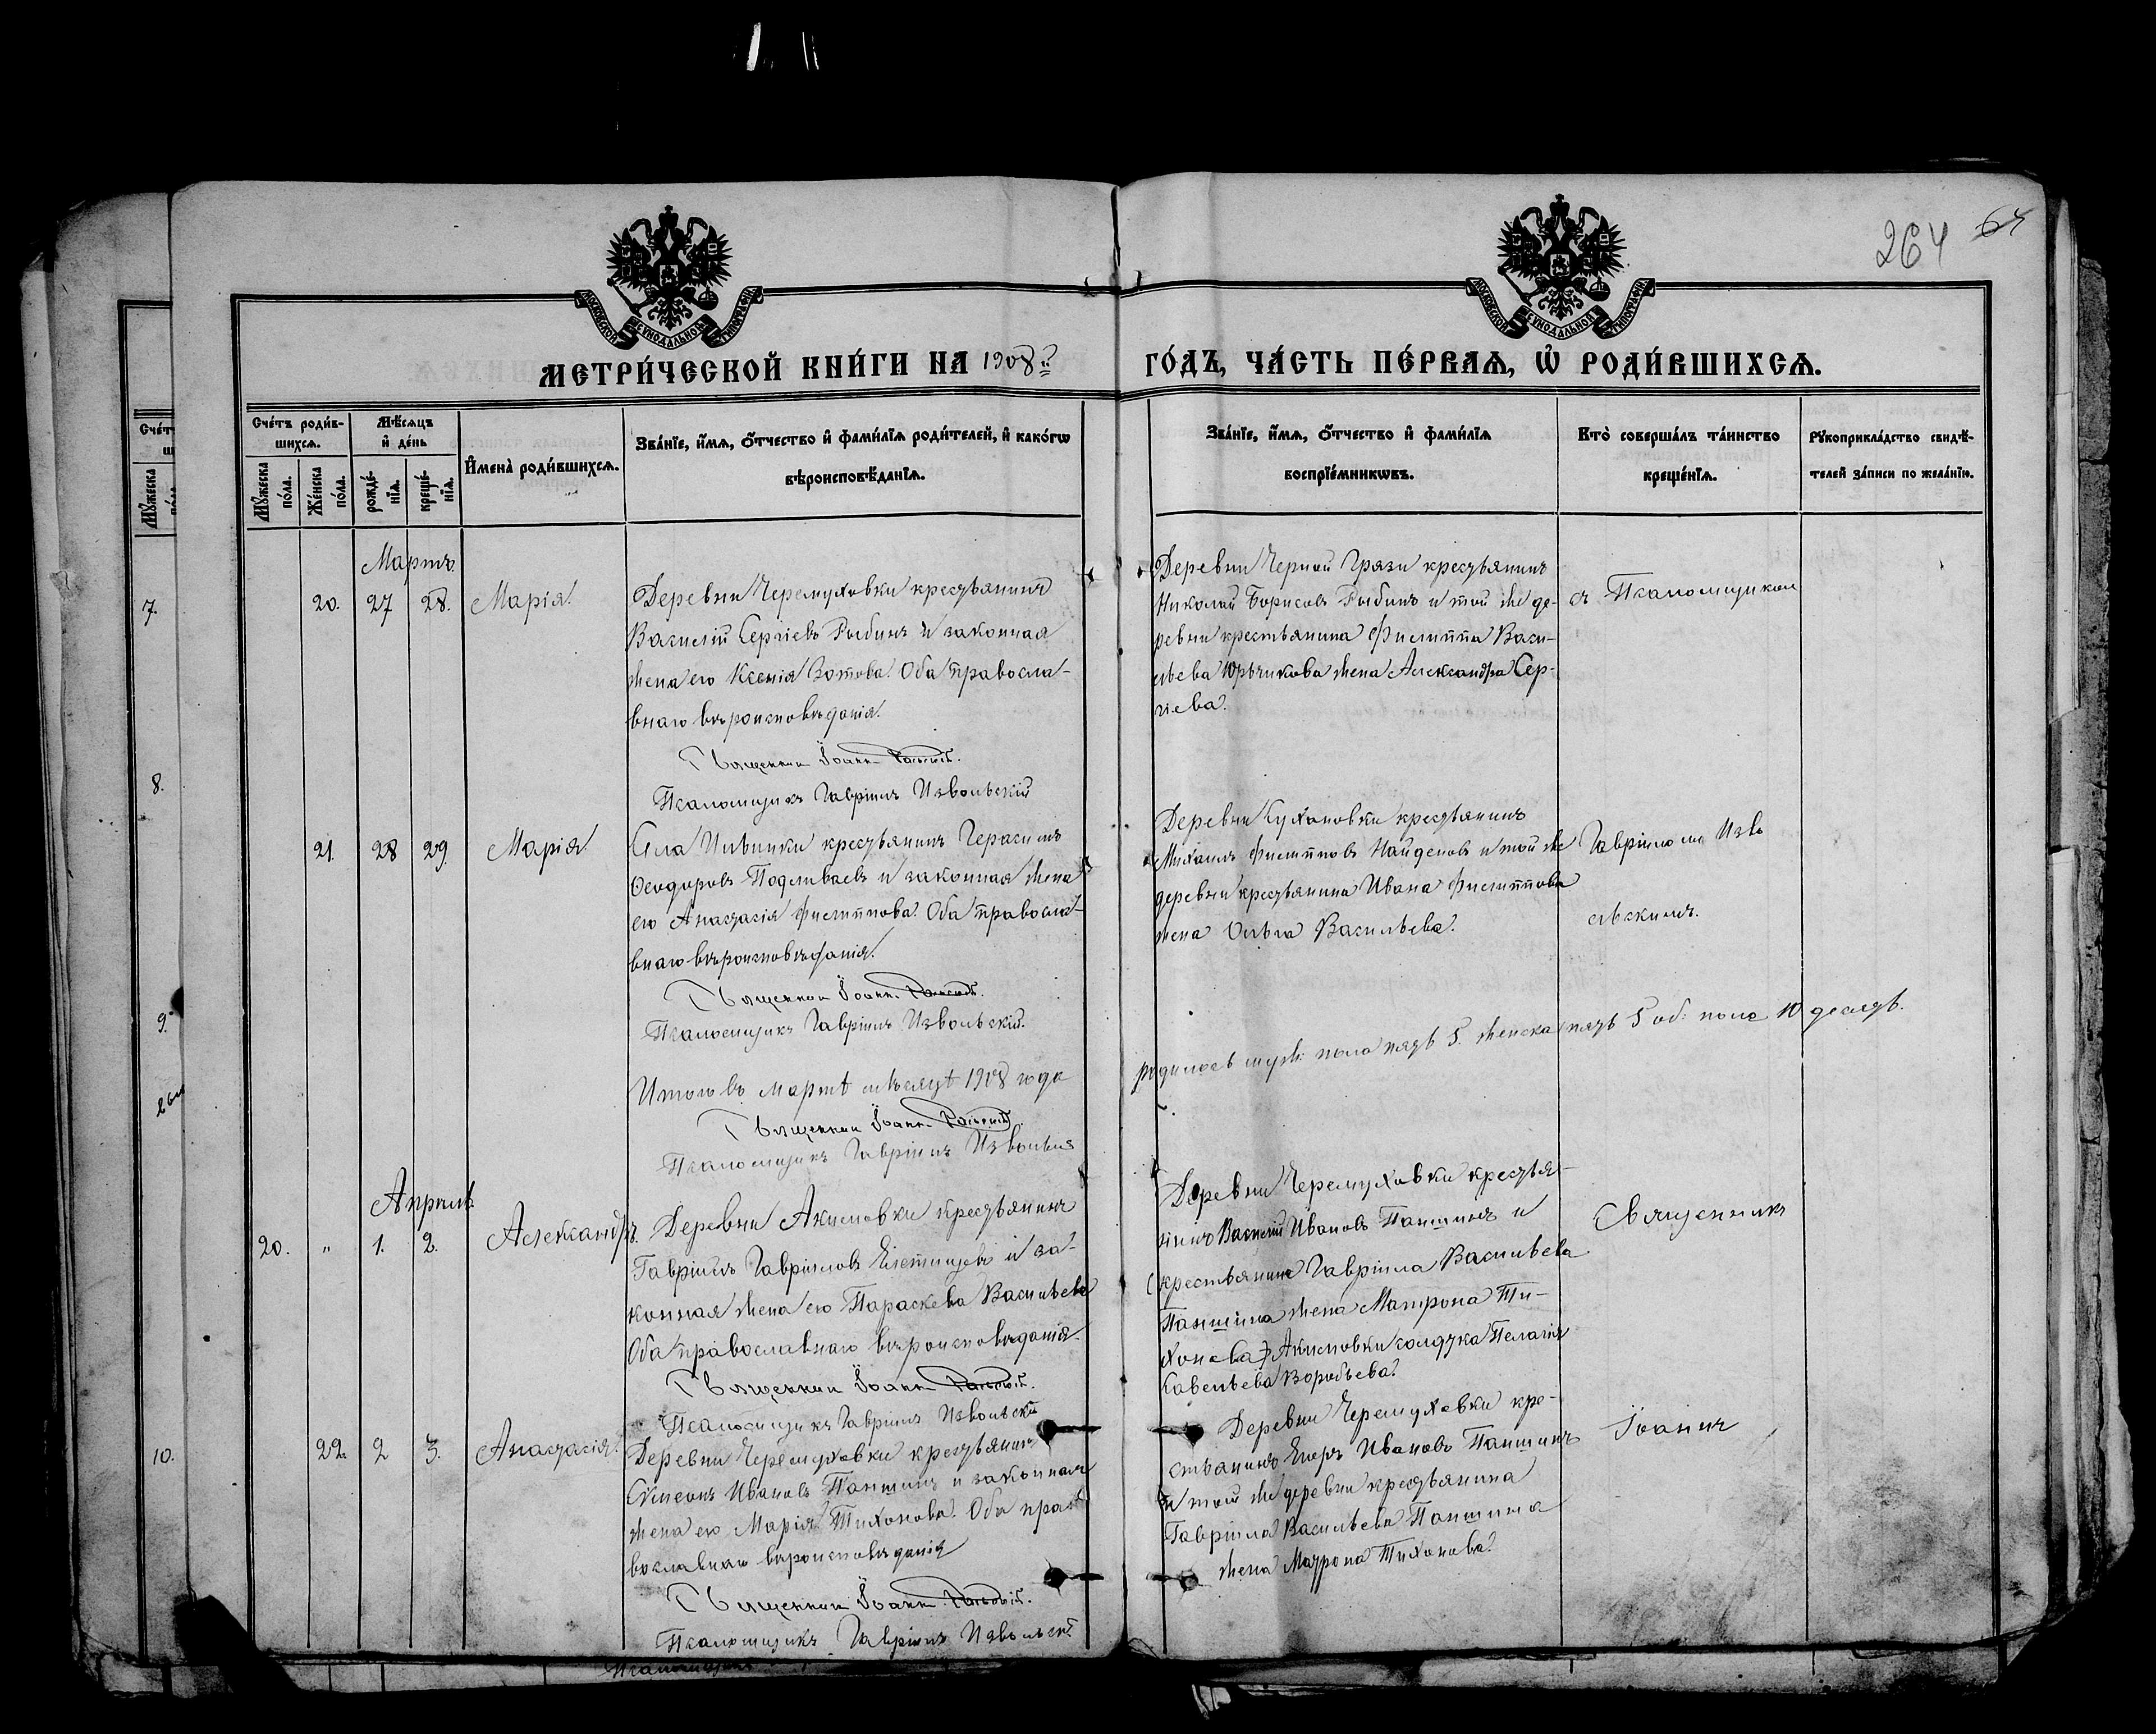 264 64
МОСКОВСКОЙ СѴНОДАЛЬНОЙ ТИПОГРАФІИ
МОСКОВСКОЙ СѴНОДАЛЬНОЙ ТИПОГРАФІИ
МЕТРИ́ЧЕСКОЙ КНИ́ГИ НА 1908 ГО́ДЪ, ЧА́СТЬ ПЕ́РВАѦ, Ѡ҆ РОДИ́ВШИХСѦ.
Сче́тъ роди́в-
шихсѧ.
Мꙋ́жеска по́ла.
Же́нска по́ла.
Мѣ́сѧцъ
и҆ де́нь
рожде́-
нїѧ.
креще́-
нїѧ.
И҆мена̀ роди́вшихсѧ.
Зва́нїе, и҆́мѧ, ѻ҆́тчество и҆ фами́лїѧ роди́телей, и҆ како́гѡ
вѣроисповѣ́данїѧ.
Зва́нїе, и҆́мѧ, ѻ҆́тчество и҆ фами́лїѧ
воспрїе́мникѡвъ.
Кто̀ соверша́лъ та́инство
креще́нїѧ.
Рꙋкоприкла́дство свидѣ́-
телей за́писи по жела́нїю.
Мартъ.
20. 27 28. Марія.
Деревни Черемуховки крестьянинъ
Василій Сергіевъ Рыбинъ и законная
жена его Ксенія Зотова. Оба правосла-
внаго вѣроисповѣданія.
Священникъ Іоаннъ
Псаломщикъ Гавріилъ Извольскій
Деревни Черной Грязи крестьянинъ
Николай Борисовъ Рыбинъ и той же де-
ревни крестьянина Филиппа Васи-
льева жена Александра Сер-
гіева.
съ Псаломщикомъ
21. 28 29. Марія
Села крестьянинъ Герасимъ
Ѳеодоровъ Подливаевъ и законная жена
его Анастасія Филиппова. Оба правосла-
внаго вѣроисповѣданія.
Священникъ Іоаннъ
Псаломщикъ Гавріилъ Извольскій.
Деревни крестьянинъ
Михаилъ Филипповъ Найденовъ и той же
деревни крестьянина Ивана Филиппова
жена Ольга Васильева.
Гавріиломъ Изво
льскимъ.
Итого въ мартѣ мѣсяцѣ 1908 года
родилось муж: пола пять 5. женска пять 5 об: пола 10 десять.
Священникъ Іоаннъ
Псаломщикъ Гавріилъ Извольскій
Апрѣль.
20. " 1. 2. Александръ.
Деревни Акимовки крестьянинъ
Гавріилъ Гавріиловъ и за-
конная жена его Параскева Васильева
Оба православнаго вѣроисповѣданія.
Священникъ Іоаннъ
Псаломщикъ Гавріилъ Извольскій
Деревни Черемуховки крестья-
нинъ Василій Ивановъ Паншинъ и
(крестьянина Гавріила Васильева
Паншина жена Матрона Ти-
хонова) Акимовки солдатка Пелагія
Савельева Воробьева.
Священникъ
22. 2 3. Анастасія.
Деревни Черемуховки крестьянинъ
Симеонъ Ивановъ Паншинъ и законная
жена его Марія Тихонова. Оба пра-
вославнаго вѣроисповѣданія
Священникъ Іоаннъ
Псаломщикъ Гавріилъ Извольскій
Деревни Черемуховки кре-
стьянинъ Егоръ Ивановъ Паншинъ
и той же деревни крестьянина
Гавріила Васильева Паншина
жена Матрона Тихонова.
Іоаннъ
7.
8.
9.
10.